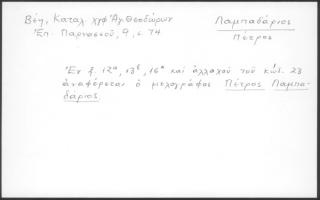 Βέη, Καταλ. χγφ Ἁγ. Θεοδώρων
Ἐπ. Παρνασσοῦ, 9, σ. 74
Λαμπαδάριος
Πέτρος
Ἐν φ. 12α, 13β, 16α καὶ ἀλλαχοῦ τοῦ κώδ. 28
ἀναφέρεται ὁ μελογράφος Πέτρος Λαμπα-
δάριος.